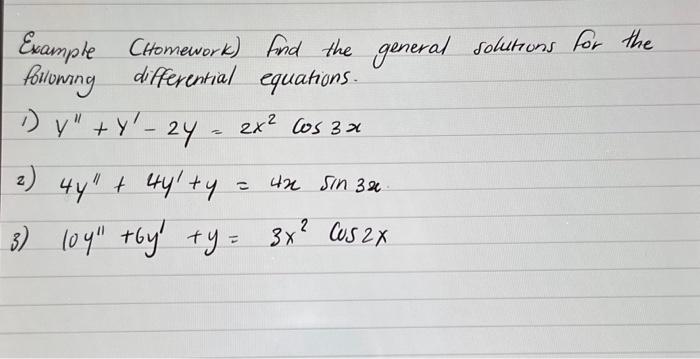 Example (Homework) find the general solutions for the
following differential equations.
1) y'' + y' - 2y = 2x² cos 3x
2) 4y'' + 4y' + y = 4x sin 3x.
3) 10y'' + 6y' + y = 3x² cos 2x